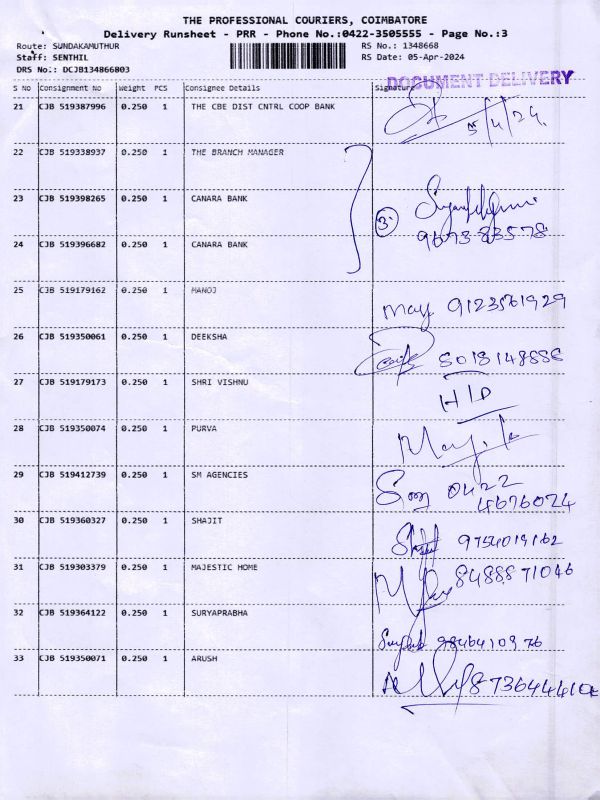 THE PROFESSIONAL COURIERS, COIMBATORE
Delivery Runsheet - PRR - Phone No.:0422-3505555 - Page No.:3
Route: SUNDAKAMUTHUR RS No.: 1348668
Staff: SENTHIL RS Date: 05-Apr-2024
DRS No.: DCJB134866803
DOCUMENT DELIVERY
S No Consignment No Weight PCS Consignee Details Signature
21 CJB 519387996 0.250 1 THE CBE DIST CNTRL COOP BANK
5/4/24.
22 CJB 519338937 0.250 1 THE BRANCH MANAGER
23 CJB 519398265 0.250 1 CANARA BANK
3
24 CJB 519396682 0.250 1 CANARA BANK
25 CJB 519179162 0.250 1 MANOJ
9123561929
26 CJB 519350061 0.250 1 DEEKSHA
27 CJB 519179173 0.250 1 SHRI VISHNU
H/D
28 CJB 519350074 0.250 1 PURVA
29 CJB 519412739 0.250 1 SM AGENCIES
0422
4676024
30 CJB 519360327 0.250 1 SHAJIT
9754019162
31 CJB 519303379 0.250 1 MAJESTIC HOME
8488871046
32 CJB 519364122 0.250 1 SURYAPRABHA
9846410976
33 CJB 519350071 0.250 1 ARUSH